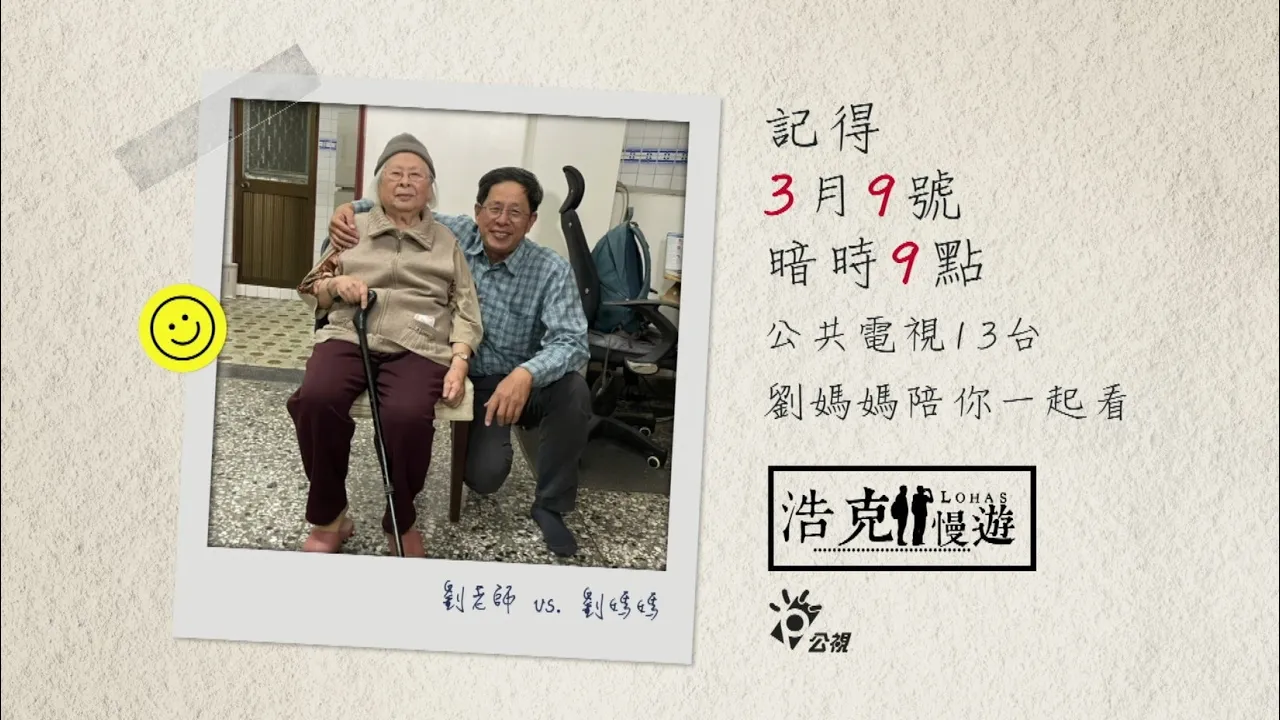 記得
3月9號
暗時9點
公共電視13台
劉媽媽陪你一起看
浩克慢遊
LOHAS
公視
劉老師 vs. 劉媽媽